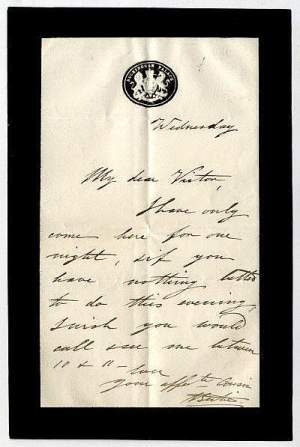 Wednesday
My dear Victor,
I have only
come here for one
night, & if you
have nothing better
to do this evening,
I wish you would
call & see me between
10 & 11 –
your affte Cousin